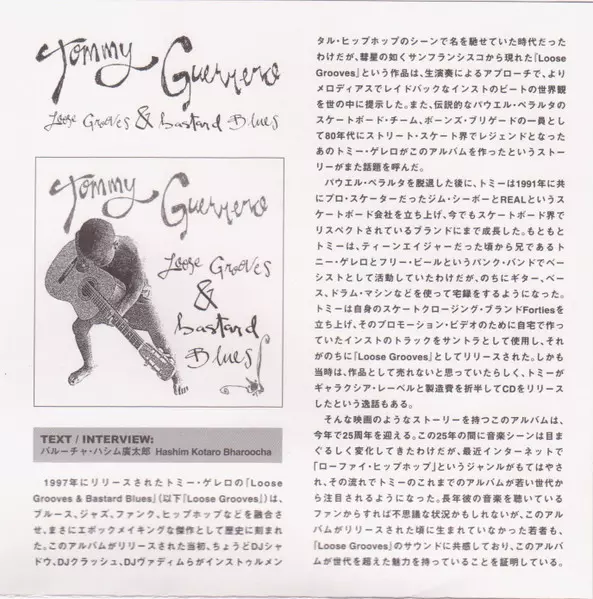 Tommy Guerrero
Loose Grooves & Bastard Blues
Tommy
Guerrero
Loose Grooves
&
bastard
Blues
TEXT / INTERVIEW:
バルーチャ・ハシム廣太郎 Hashim Kotaro Bharoocha
1997年にリリースされたトミー・ゲレロの『Loose
Grooves & Bastard Blues』(以下『Loose Grooves』)は、
ブルース、ジャズ、ファンク、ヒップホップなどを融合さ
せ、まさにエポックメイキングな傑作として歴史に刻まれ
た。このアルバムがリリースされた当初、ちょうどDJシャ
ドウ、DJクラッシュ、DJヴァディムらがインストゥルメン
タル・ヒップホップのシーンで名を馳せていた時代だった
わけだが、彗星の如くサンフランシスコから現れた『Loose
Grooves』という作品は、生演奏によるアプローチで、より
メロディアスでレイドバックなインストのビートの世界観
を世の中に提示した。また、伝説的なパウエル・ペラルタの
スケートボード・チーム、ボーンズ・ブリゲードの一員とし
て80年代にストリート・スケート界でレジェンドとなった
あのトミー・ゲレロがこのアルバムを作ったというストー
リーがまた話題を呼んだ。
パウエル・ペラルタを脱退した後に、トミーは1991年に共
にプロ・スケーターだったジム・シーボーとREALというス
ケートボード会社を立ち上げ、今でもスケートボード界で
リスペクトされているブランドにまで成長した。もともと
トミーは、ティーンエイジャーだった頃から兄であるト
ニー・ゲレロとフリー・ビールというパンク・バンドでベー
シストとして活動していたわけだが、のちにギター、ベー
ス、ドラム・マシンなどを使って宅録をするようになった。
トミーは自身のスケートクロージング・ブランドFortiesを
立ち上げ、そのプロモーション・ビデオのために自宅で作っ
ていたインストのトラックをサントラとして使用し、それ
がのちに『Loose Grooves』としてリリースされた。しかも
当時は、作品として売れないと思っていたらしく、トミーが
ギャラクシア・レーベルと製造費を折半してCDをリリース
したという逸話もある。
そんな映画のようなストーリーを持つこのアルバムは、
今年で25周年を迎える。この25年の間に音楽シーンは目ま
ぐるしく変化してきたわけだが、最近インターネットで
「ローファイ・ヒップホップ」というジャンルがもてはやさ
れ、その流れでトミーのこれまでのアルバムが若い世代か
ら注目されるようになった。長年彼の音楽を聴いている
ファンからすれば不思議な状況かもしれないが、このアル
バムがリリースされた頃に生まれていなかった若者も、
『Loose Grooves』のサウンドに共感しており、このアルバ
ムが世代を超えた魅力を持っていることを証明している。